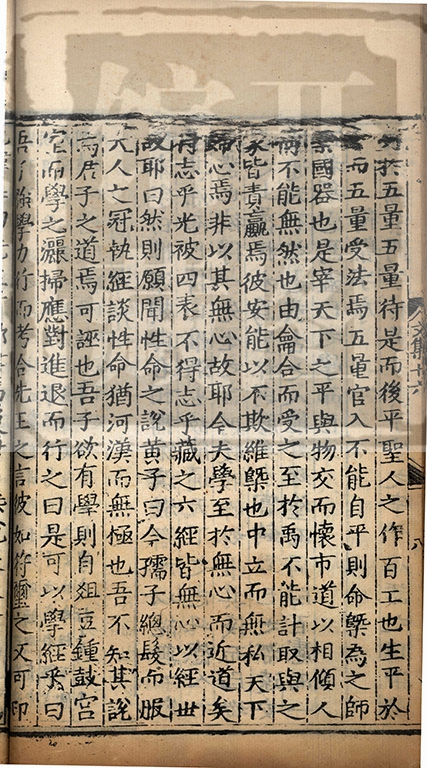 於五量五量待是而後平聖人之作百工也生平於
而五量受法焉五量官入不能自平則命槩為之師
國器也是宰天下之平與物交而懷市道以相傾人
而不能無然也由龠合而受之至於禹不能計取與之
家皆責贏焉彼安能以不欺維槩也中立而無私天下
歸心焉非以其無心故耶今夫學至於無心而近道矣
得志乎光被四表不得志乎藏之六經皆無心以經世
故耶曰然則願聞性命之說黃子曰今孺子總髮而服
大人之冠執經談性命猶河漢而無極也吾不知其說
焉君子之道焉可誣也吾子欲有學則自俎豆鍾鼓宮
室而學之灑掃應對進退而行之曰是可以學經乎曰
學力行而考合先王之言彼如符璽之文可印
文集十六
八